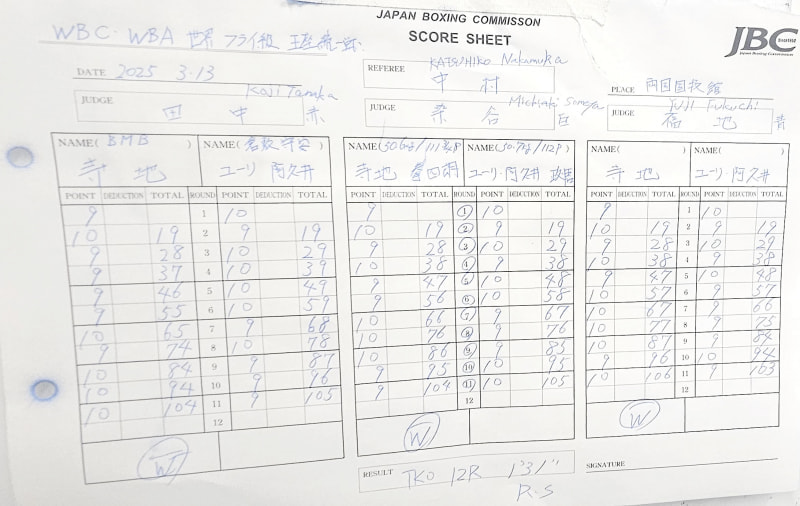 JAPAN BOXING COMMISSON
SCORE SHEET
JBC
WBC・WBA 世界 フライ級 王座統一戦
DATE 2025 3.13
REFEREE KATSUHIKO Nakamura 中村
PLACE 両国国技館
JUDGE Koji Tanaka 田中 赤
JUDGE 桑合
JUDGE Yuji Fukuchi 福地 青
NAME( BMB ) NAME( 倉敷守安
寺地 ユーリ 阿久井
NAME( NAME(
寺地 拳四朗 ユーリ・阿久井 政悟
NAME( ) NAME( )
寺地 ユーリ 阿久井
POINT DEDUCTION TOTAL ROUND POINT DEDUCTION TOTAL
9 1 10
10 19 2 9 19
9 28 3 10 29
9 37 4 10 39
9 46 5 10 49
9 55 6 10 59
10 65 7 9 68
9 74 8 10 78
10 84 9 9 87
10 94 10 9 96
10 104 11 9 105
12
W
POINT DEDUCTION TOTAL ROUND POINT DEDUCTION TOTAL
9 1 10
10 19 2 9 19
9 28 3 10 29
10 38 4 9 38
9 47 5 10 48
9 56 6 10 58
10 66 7 9 67
10 76 8 9 76
10 86 9 9 85
9 95 10 10 95
9 104 11 10 105
12
W
POINT DEDUCTION TOTAL ROUND POINT DEDUCTION TOTAL
9 1 10
10 19 2 9 19
9 28 3 10 29
10 38 4 9 38
9 47 5 10 48
10 57 6 9 57
10 67 7 9 66
10 77 8 9 75
10 87 9 9 84
9 96 10 10 94
10 106 11 9 103
12
W
RESULT TKO 12R 1'31"
R.S
SIGNATURE